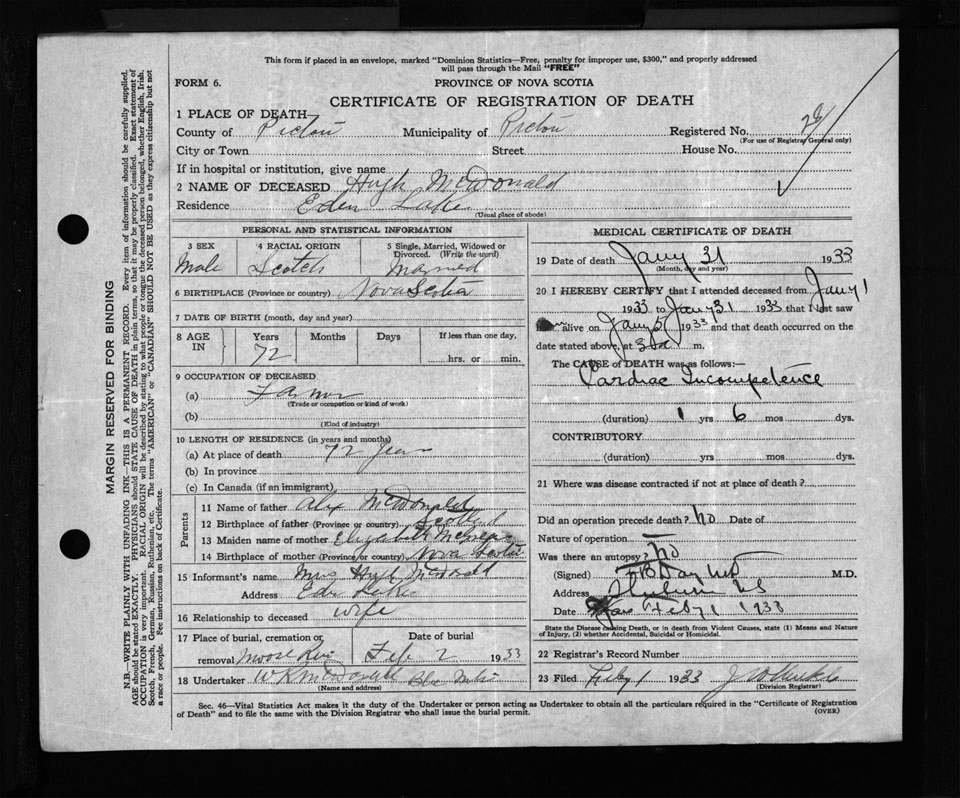 This form if placed in an envelope, marked "Dominion Statistics—Free, penalty for improper use, $300," and properly addressed
will pass through the Mail "FREE"
FORM 6.
PROVINCE OF NOVA SCOTIA
CERTIFICATE OF REGISTRATION OF DEATH
1 PLACE OF DEATH—
County of Pictou Municipality of Pictou Registered No. 26
(For use of Registrar General only)
City or Town Street House No.
If in hospital or institution, give name
2 NAME OF DECEASED Hugh McDonald
Residence Eden Lake
(Usual place of abode)
PERSONAL AND STATISTICAL INFORMATION
3 SEX 4 RACIAL ORIGIN 5 Single, Married, Widowed or
Divorced. (Write the word)
Male Scotch Married
6 BIRTHPLACE (Province or country) Nova Scotia
7 DATE OF BIRTH (month, day and year)
8 AGE IN Years Months Days If less than one day,
72 hrs. or min.
9 OCCUPATION OF DECEASED
(a) Farmer
(Trade or occupation or kind of work)
(b)
(Kind of industry)
10 LENGTH OF RESIDENCE (in years and months)
(a) At place of death 72 years
(b) In province
(c) In Canada (if an immigrant)
Parents
11 Name of father Alex McDonald
12 Birthplace of father (Province or country) Scotland
13 Maiden name of mother Elizabeth
14 Birthplace of mother (Province or country) Nova Scotia
15 Informant's name Mrs Hugh McDonald
Address Eden Lake
16 Relationship to deceased wife
17 Place of burial, cremation or Date of burial
removal Moose River Feb 2 1933
18 Undertaker W R McDonald
(Name and address)
MEDICAL CERTIFICATE OF DEATH
19 Date of death Jany 31 1933
(Month, day and year)
20 I HEREBY CERTIFY that I attended deceased from Jany 1
1933 to Jany 31 1933 that I last saw
alive on Jany 5 1933 and that death occurred on the
date stated above, at 3 a m.
The CAUSE OF DEATH was as follows:—
Cardiac Incompetence
(duration) 1 yrs 6 mos dys.
CONTRIBUTORY
(duration) yrs. mos. dys.
21 Where was disease contracted if not at place of death?
Did an operation precede death? no Date of
Nature of operation
Was there an autopsy? no
(Signed) M.D.
Address N S
Date Feb 1 1933
State the Disease causing Death, or in death from Violent Causes, state (1) Means and Nature
of Injury, (2) whether Accidental, Suicidal or Homicidal.
22 Registrar's Record Number
23 Filed Feby 1 1933
(Division Registrar)
Sec. 46—Vital Statistics Act makes it the duty of the Undertaker or person acting as Undertaker to obtain all the particulars required in the "Certificate of Registration
of Death" and to file the same with the Division Registrar who shall issue the burial permit.
(OVER)
MARGIN RESERVED FOR BINDING
N.B.—WRITE PLAINLY WITH UNFADING INK—THIS IS A PERMANENT RECORD. Every item of information should be carefully supplied.
AGE should be stated EXACTLY. PHYSICIANS should STATE CAUSE OF DEATH in plain terms, so that it may be properly classified. Exact statement of
OCCUPATION is very important. RACIAL ORIGIN will be described by stating to what people or tongue the deceased person belonged, whether English, Irish,
Scotch, French, German, Russian, Ruthenian, etc. The terms "AMERICAN" or "CANADIAN" SHOULD NOT BE USED as they express citizenship but not
a race or people. See instructions on back of Certificate.